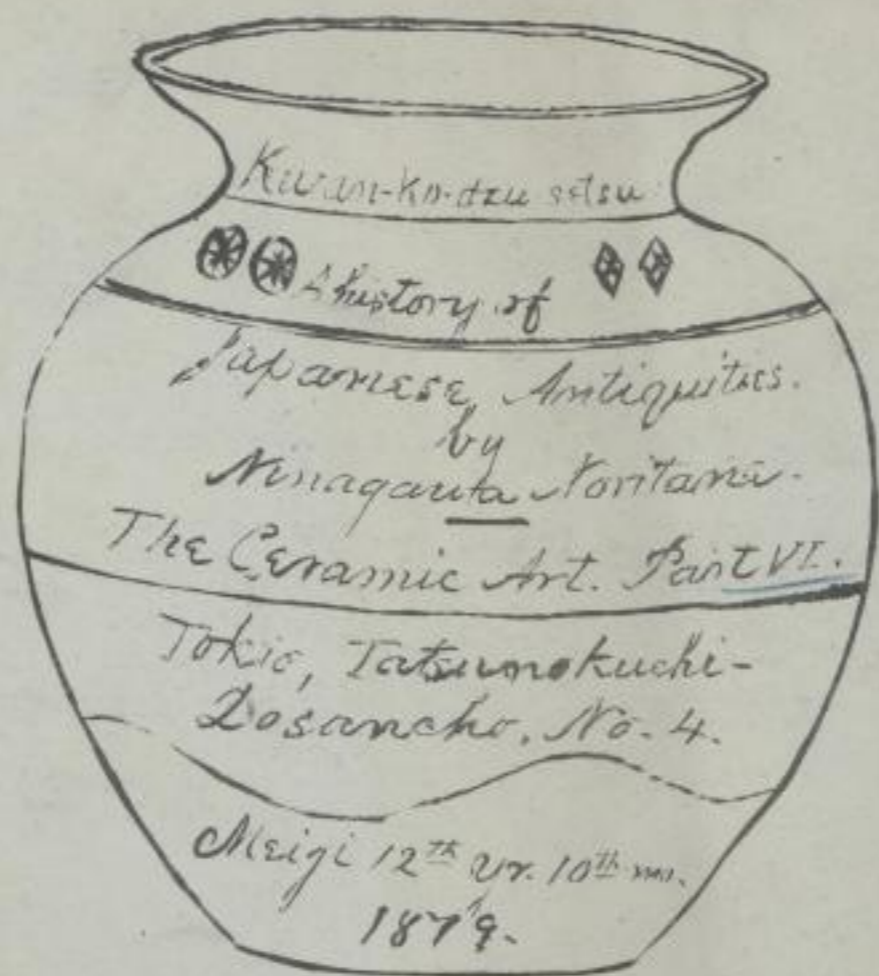 Kwan-ko-dzu setsu
A history of
Japanese Antiquities.
by
Ninagauta Noritane.
The Ceramic Art. Part VI.
Tokio, Tatsunokuchi-
Dosancho, No. 4.
Meigi 12th yr. 10th mo.
1879.